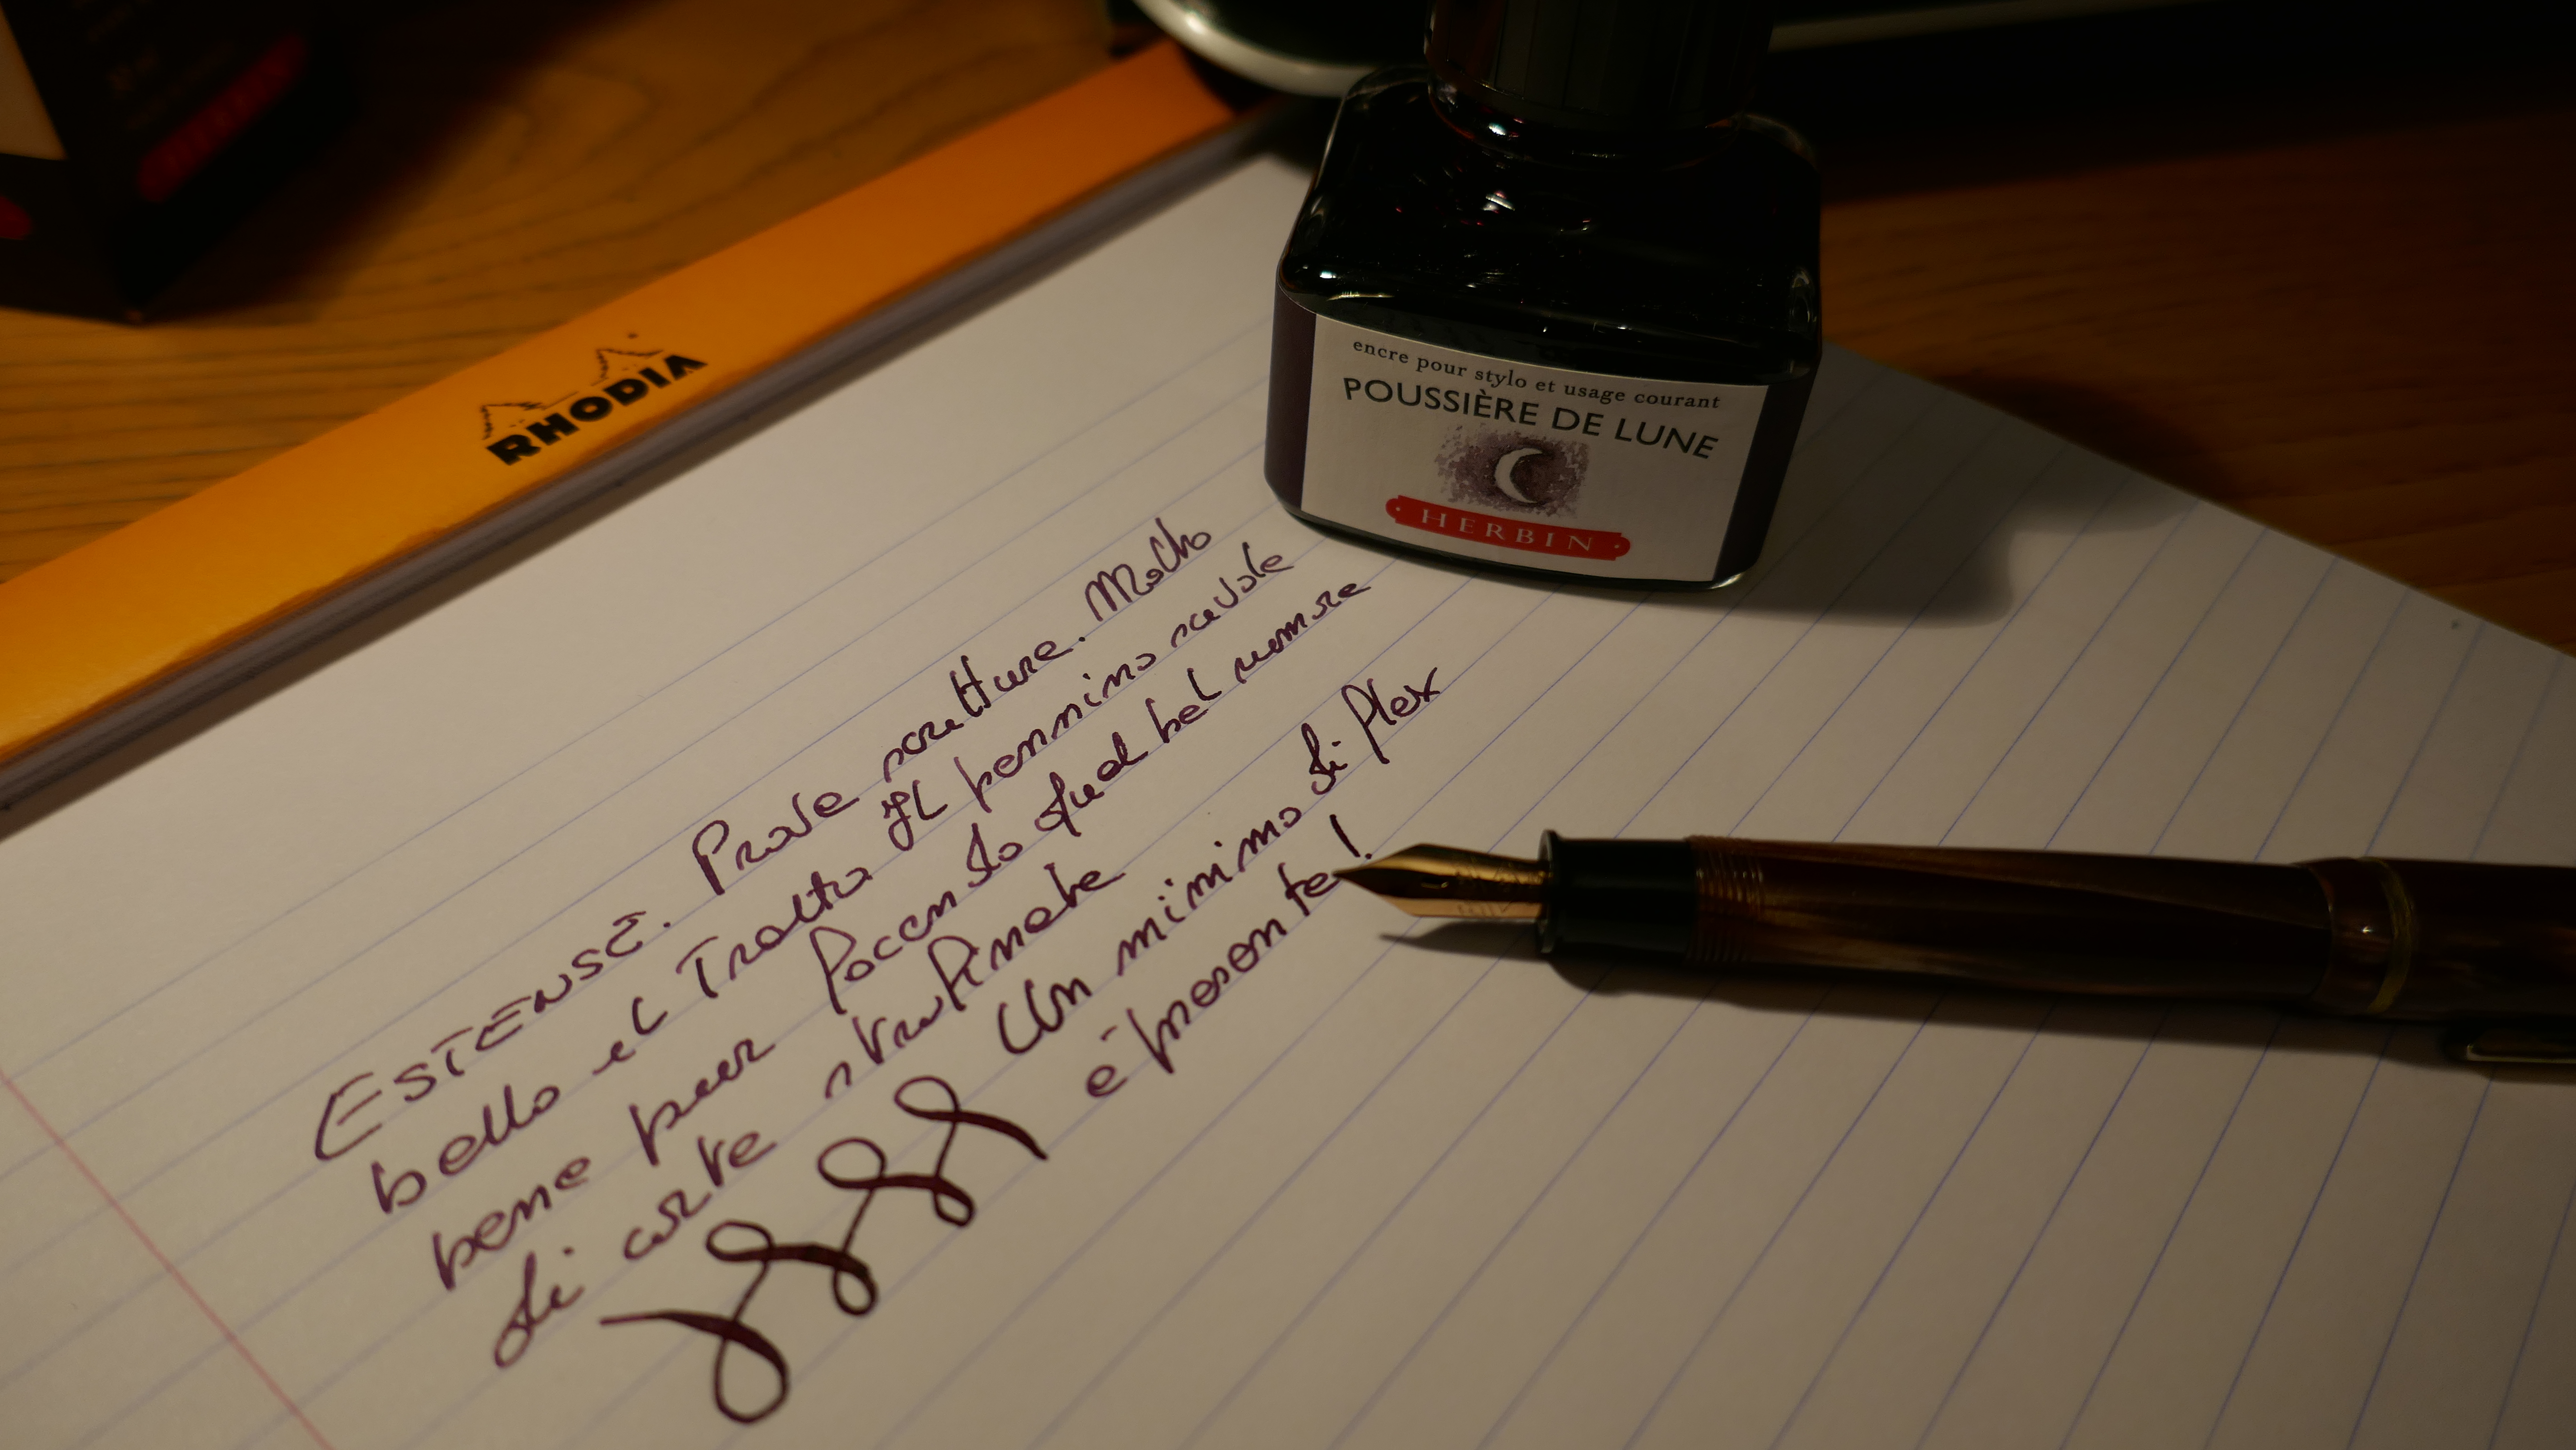 RHODIA
encre pour stylo et usage courant
POUSSIÈRE DE LUNE
HERBIN
ESTENSE. Prove scritture. Molto
bello il Tratto Il pennino scivola
bene pur facendo quel bel rumore
di carte strofinate
Un minimo di flex
è presente!